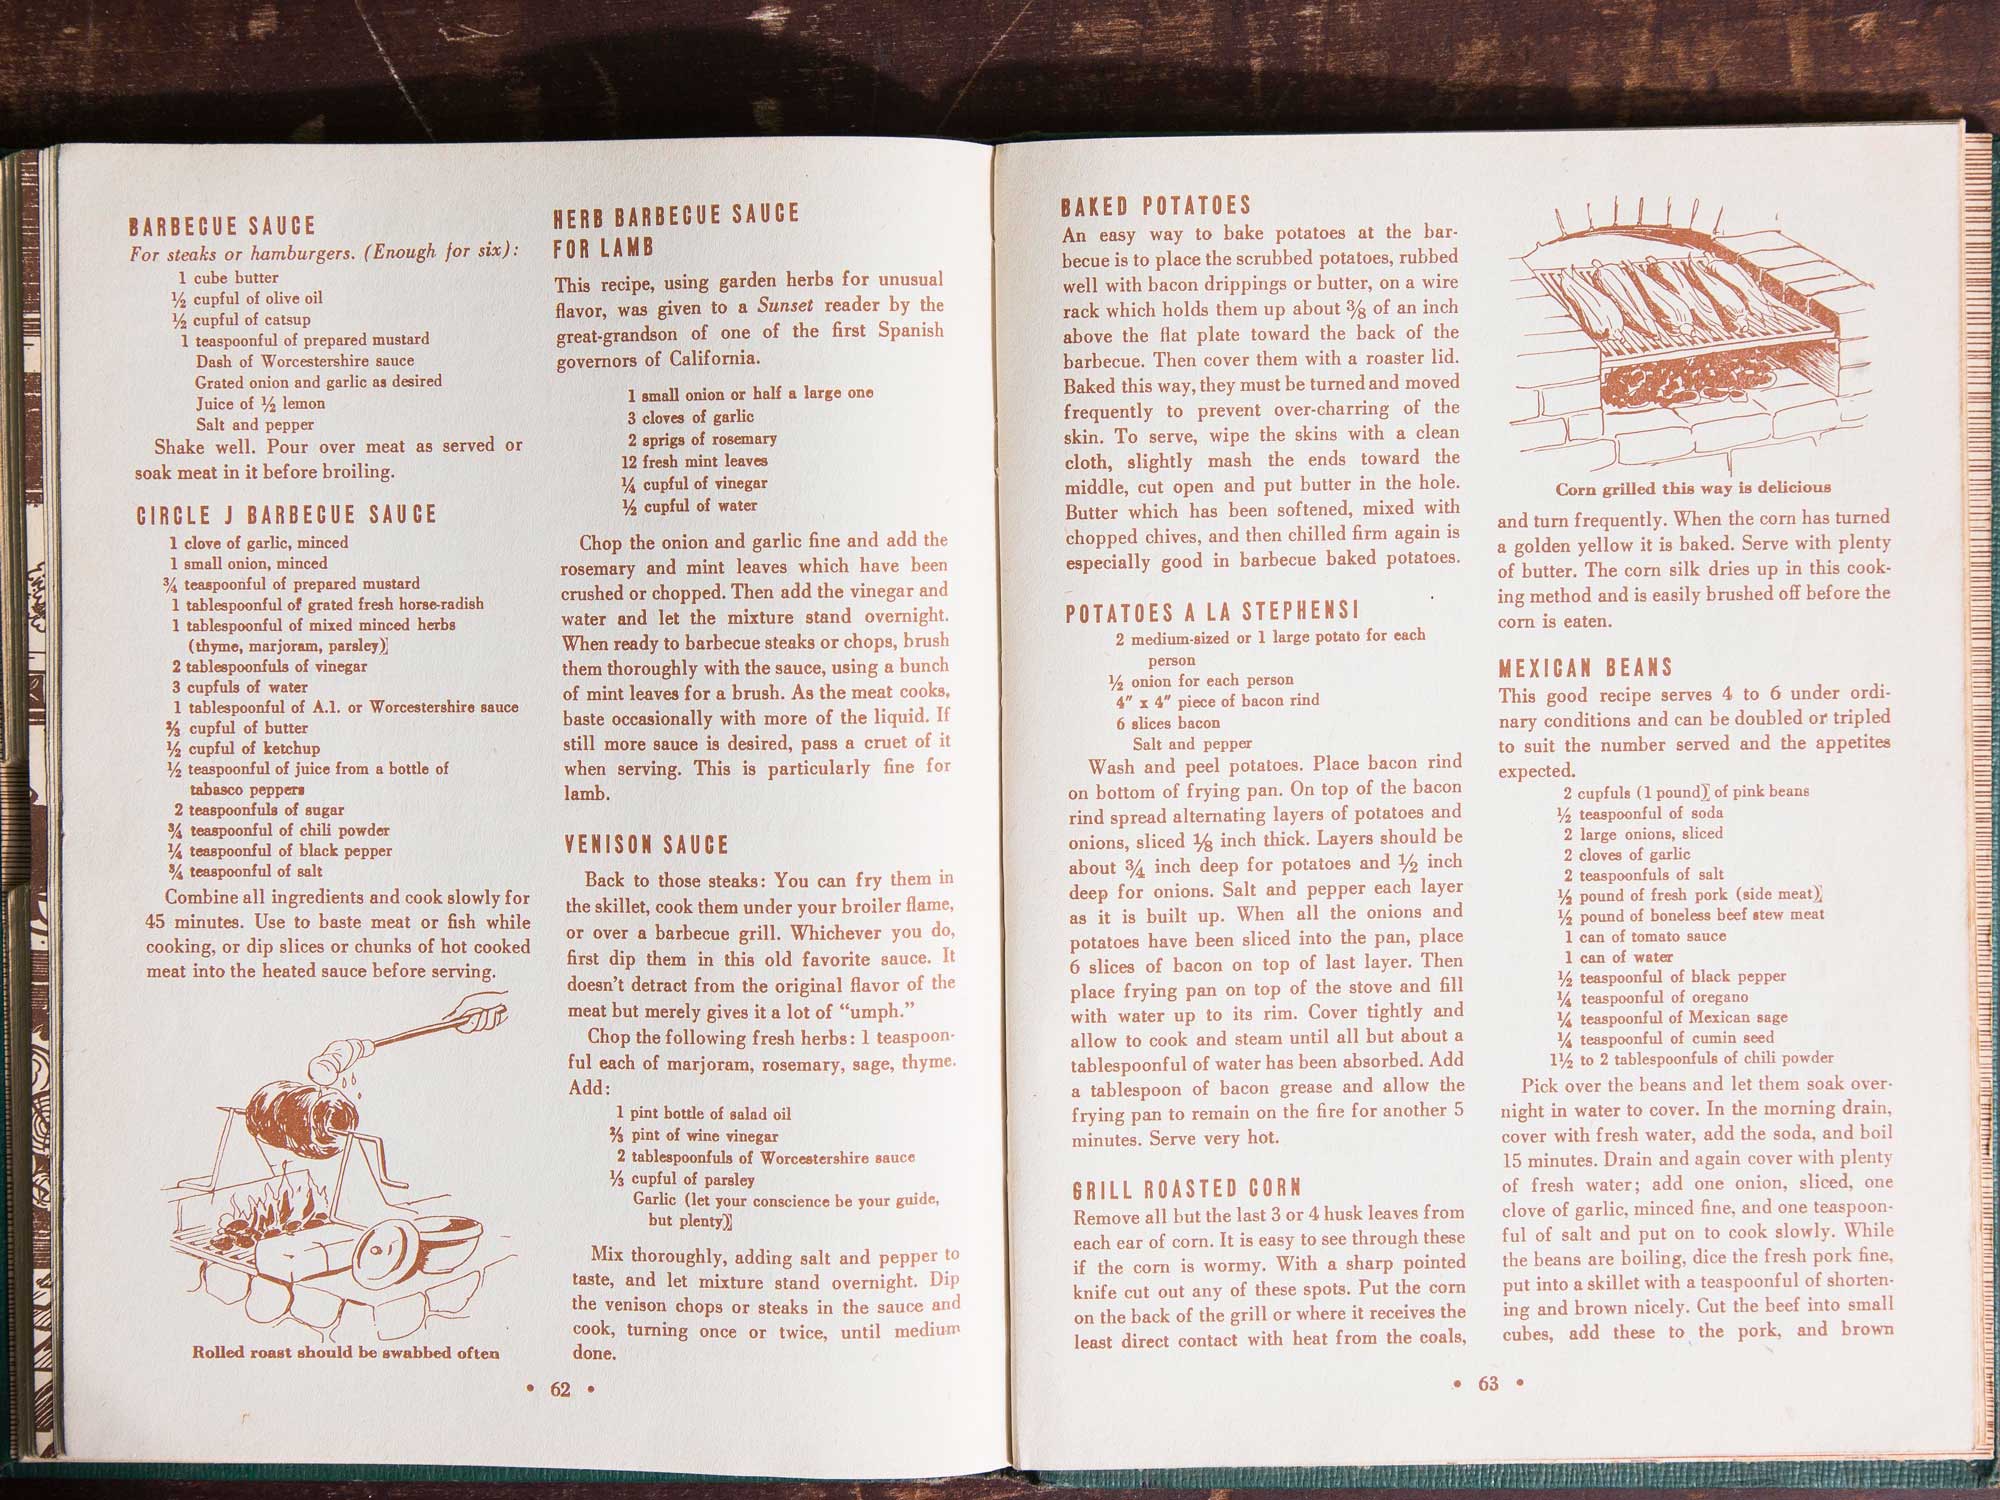 BARBECUE SAUCE
For steaks or hamburgers. (Enough for six):
1 cube butter
½ cupful of olive oil
½ cupful of catsup
1 teaspoonful of prepared mustard
Dash of Worcestershire sauce
Grated onion and garlic as desired
Juice of ½ lemon
Salt and pepper
Shake well. Pour over meat as served or
soak meat in it before broiling.
CIRCLE J BARBECUE SAUCE
1 clove of garlic, minced
1 small onion, minced
¾ teaspoonful of prepared mustard
1 tablespoonful of grated fresh horse-radish
1 tablespoonful of mixed minced herbs
(thyme, marjoram, parsley)
2 tablespoonfuls of vinegar
3 cupfuls of water
1 tablespoonful of A.1. or Worcestershire sauce
⅔ cupful of butter
½ cupful of ketchup
½ teaspoonful of juice from a bottle of
tabasco peppers
2 teaspoonfuls of sugar
¾ teaspoonful of chili powder
¼ teaspoonful of black pepper
¾ teaspoonful of salt
Combine all ingredients and cook slowly for
45 minutes. Use to baste meat or fish while
cooking, or dip slices or chunks of hot cooked
meat into the heated sauce before serving.
Rolled roast should be swabbed often
HERB BARBECUE SAUCE
FOR LAMB
This recipe, using garden herbs for unusual
flavor, was given to a Sunset reader by the
great-grandson of one of the first Spanish
governors of California.
1 small onion or half a large one
3 cloves of garlic
2 sprigs of rosemary
12 fresh mint leaves
¼ cupful of vinegar
½ cupful of water
Chop the onion and garlic fine and add the
rosemary and mint leaves which have been
crushed or chopped. Then add the vinegar and
water and let the mixture stand overnight.
When ready to barbecue steaks or chops, brush
them thoroughly with the sauce, using a bunch
of mint leaves for a brush. As the meat cooks,
baste occasionally with more of the liquid. If
still more sauce is desired, pass a cruet of it
when serving. This is particularly fine for
lamb.
VENISON SAUCE
Back to those steaks: You can fry them in
the skillet, cook them under your broiler flame,
or over a barbecue grill. Whichever you do,
first dip them in this old favorite sauce. It
doesn't detract from the original flavor of the
meat but merely gives it a lot of "umph."
Chop the following fresh herbs: 1 teaspoon-
ful each of marjoram, rosemary, sage, thyme.
Add:
1 pint bottle of salad oil
⅔ pint of wine vinegar
2 tablespoonfuls of Worcestershire sauce
⅓ cupful of parsley
Garlic (let your conscience be your guide,
but plenty)
Mix thoroughly, adding salt and pepper to
taste, and let mixture stand overnight. Dip
the venison chops or steaks in the sauce and
cook, turning once or twice, until medium
done.
• 62 •
BAKED POTATOES
An easy way to bake potatoes at the bar-
becue is to place the scrubbed potatoes, rubbed
well with bacon drippings or butter, on a wire
rack which holds them up about ⅜ of an inch
above the flat plate toward the back of the
barbecue. Then cover them with a roaster lid.
Baked this way, they must be turned and moved
frequently to prevent over-charring of the
skin. To serve, wipe the skins with a clean
cloth, slightly mash the ends toward the
middle, cut open and put butter in the hole.
Butter which has been softened, mixed with
chopped chives, and then chilled firm again is
especially good in barbecue baked potatoes.
POTATOES A LA STEPHENSI
2 medium-sized or 1 large potato for each
person
½ onion for each person
4″ x 4″ piece of bacon rind
6 slices bacon
Salt and pepper
Wash and peel potatoes. Place bacon rind
on bottom of frying pan. On top of the bacon
rind spread alternating layers of potatoes and
onions, sliced ⅛ inch thick. Layers should be
about ¾ inch deep for potatoes and ½ inch
deep for onions. Salt and pepper each layer
as it is built up. When all the onions and
potatoes have been sliced into the pan, place
6 slices of bacon on top of last layer. Then
place frying pan on top of the stove and fill
with water up to its rim. Cover tightly and
allow to cook and steam until all but about a
tablespoonful of water has been absorbed. Add
a tablespoon of bacon grease and allow the
frying pan to remain on the fire for another 5
minutes. Serve very hot.
GRILL ROASTED CORN
Remove all but the last 3 or 4 husk leaves from
each ear of corn. It is easy to see through these
if the corn is wormy. With a sharp pointed
knife cut out any of these spots. Put the corn
on the back of the grill or where it receives the
least direct contact with heat from the coals,
Corn grilled this way is delicious
and turn frequently. When the corn has turned
a golden yellow it is baked. Serve with plenty
of butter. The corn silk dries up in this cook-
ing method and is easily brushed off before the
corn is eaten.
MEXICAN BEANS
This good recipe serves 4 to 6 under ordi-
nary conditions and can be doubled or tripled
to suit the number served and the appetites
expected.
2 cupfuls (1 pound) of pink beans
½ teaspoonful of soda
2 large onions, sliced
2 cloves of garlic
2 teaspoonfuls of salt
½ pound of fresh pork (side meat)
½ pound of boneless beef stew meat
1 can of tomato sauce
1 can of water
½ teaspoonful of black pepper
¼ teaspoonful of oregano
¼ teaspoonful of Mexican sage
¼ teaspoonful of cumin seed
1½ to 2 tablespoonfuls of chili powder
Pick over the beans and let them soak over-
night in water to cover. In the morning drain,
cover with fresh water, add the soda, and boil
15 minutes. Drain and again cover with plenty
of fresh water; add one onion, sliced, one
clove of garlic, minced fine, and one teaspoon-
ful of salt and put on to cook slowly. While
the beans are boiling, dice the fresh pork fine,
put into a skillet with a teaspoonful of shorten-
ing and brown nicely. Cut the beef into small
cubes, add these to the pork, and brown
• 63 •